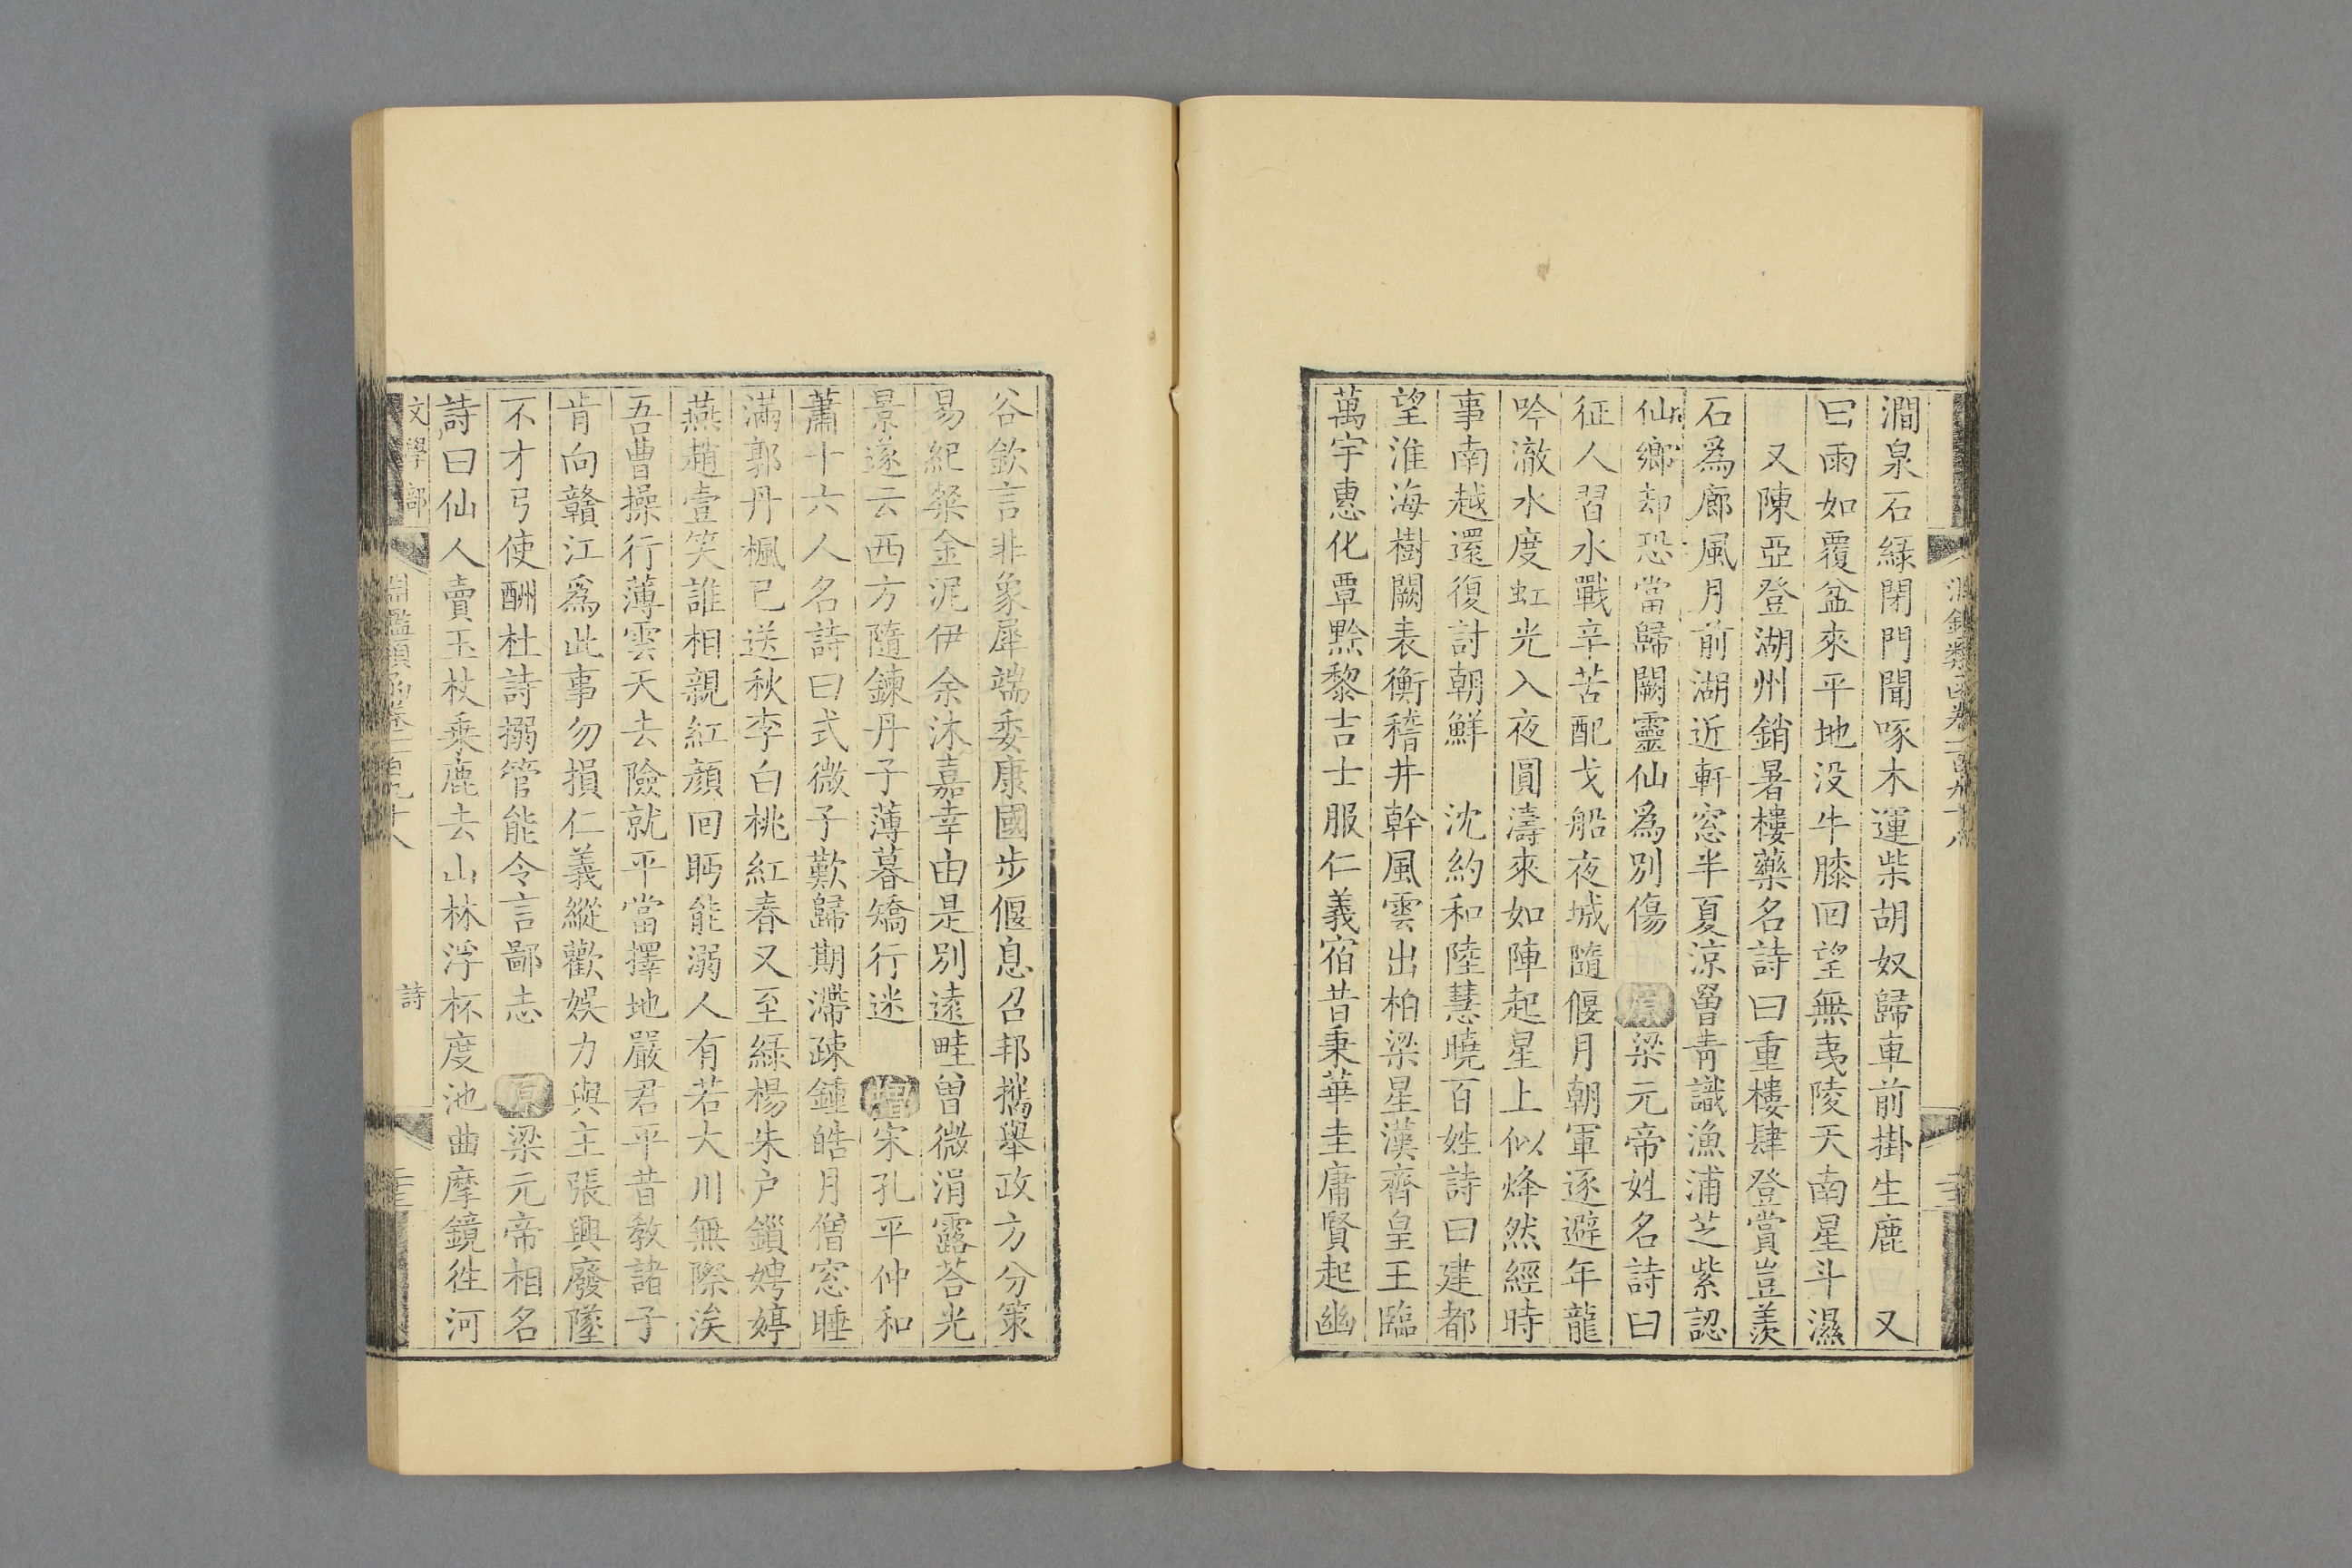 澗泉石緑閉門聞啄木運柴胡奴歸車前掛生鹿　又
曰雨如覆盆來平地没牛膝回望無夷陵天南星斗濕
又陳亞登湖州銷暑樓藥名詩曰重樓肆登賞豈羨
石爲廊風月前湖近軒窓半夏涼罾青識漁浦芝紫認
仙鄉却恐當歸闕靈仙爲別傷　原梁元帝姓名詩曰
征人習水戰辛苦配戈船夜城隨偃月朝軍逐避年龍
吟澈水度虹光入夜圓濤來如陣起星上似烽然經時
事南越還復討朝鮮　沈約和陸慧曉百姓詩曰建都
望淮海樹闕表衡稽井幹風雲出柏梁星漢齊皇王臨
萬宇惠化覃黔黎吉士服仁義宿昔秉華圭庸賢起幽
谷欽言非象犀端委康國步偃息召邦攜舉政方分策
易紀粲金泥伊余沐嘉幸由是別遠畦曽微涓露荅光
景遂云西方隨鍊丹子薄暮矯行迷　增宋孔平仲和
蕭十六人名詩曰式微子歎歸期滯疎鍾皓月僧窓睡
滿郭丹楓已送秋李白桃紅春又至緑楊朱戸鎖娉婷
燕趙壹笑誰相親紅顔回眄能溺人有若大川無際涘
吾曹操行薄雲天去險就平當擇地嚴君平昔教諸子
肯向贛江爲此事勿損仁義縱歡娛力與主張興廢墜
不才弓使酬杜詩搦管能令言鄙志　原梁元帝相名
詩曰仙人賣玉杖乗鹿去山林浮杯度池曲摩鏡徃河
文學部
詩